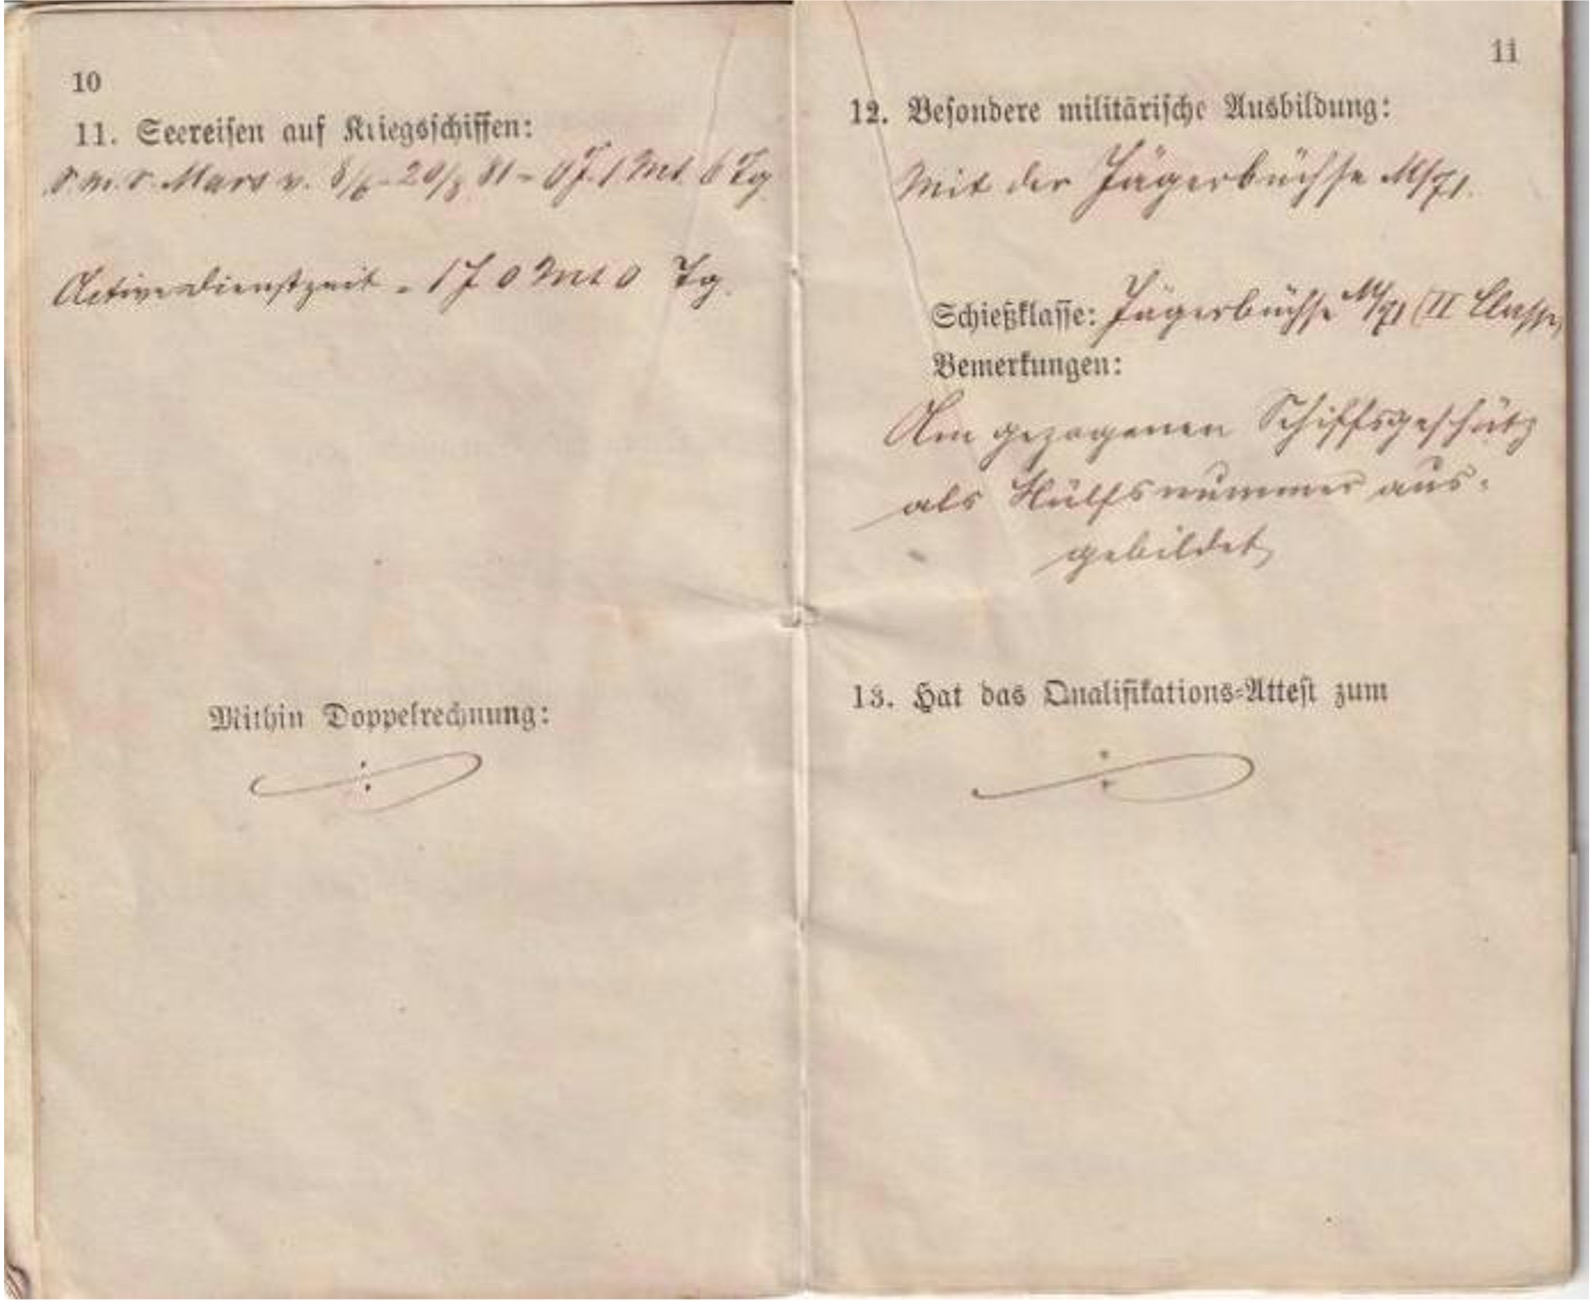 10
11. Seereisen auf Kriegsschiffen:
S. M. S. Mars v. 8/6 - 20/8 81 - 0 J. 1 Mt. 6 Tg
Active Dienstzeit - 1 J 0 Mt 0 Tg.
Mithin Doppelrechnung:
11
12. Besondere militärische Ausbildung:
Mit der Jägerbüchse M/71.
Schießklasse: Jägerbüchse M/71 (II Classe)
Bemerkungen:
Am gezogenen Schiffsgeschütz
als Hülfsnummer aus-
gebildet
13. Hat das Qualifikations-Attest zum